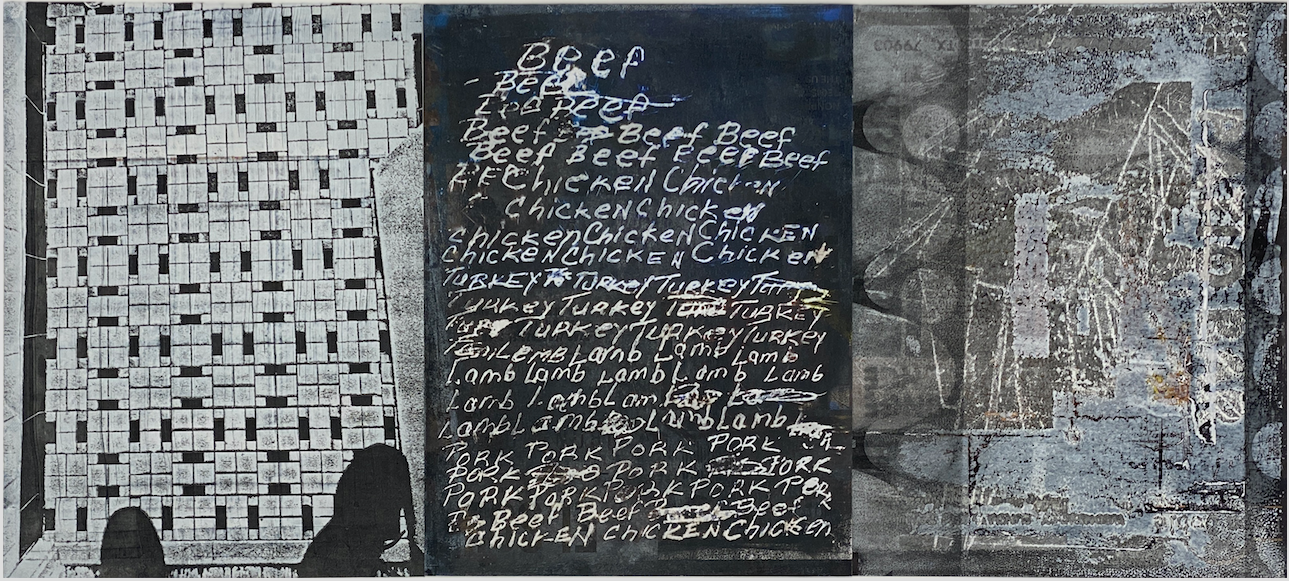 Beef
- Beef
Beef
Beef Beef Beef
Beef Beef Beef Beef
Chicken Chicken
Chicken Chicken
Chicken Chicken Chicken
Chicken Chicken Chicken
TURKEY TURKEY TURKEY
TURKEY Turkey TURKEY
TURKEY TURKEY TURKEY
Lamb Lamb Lamb Lamb
Lamb Lamb Lamb Lamb Lamb
Lamb Lamb Lamb
Lamb Lamb Lamb Lamb
PORK PORK PORK PORK
PORK PORK PORK
PORK PORK PORK PORK
Beef Beef Beef
Chicken Chicken Chicken
TX 79903